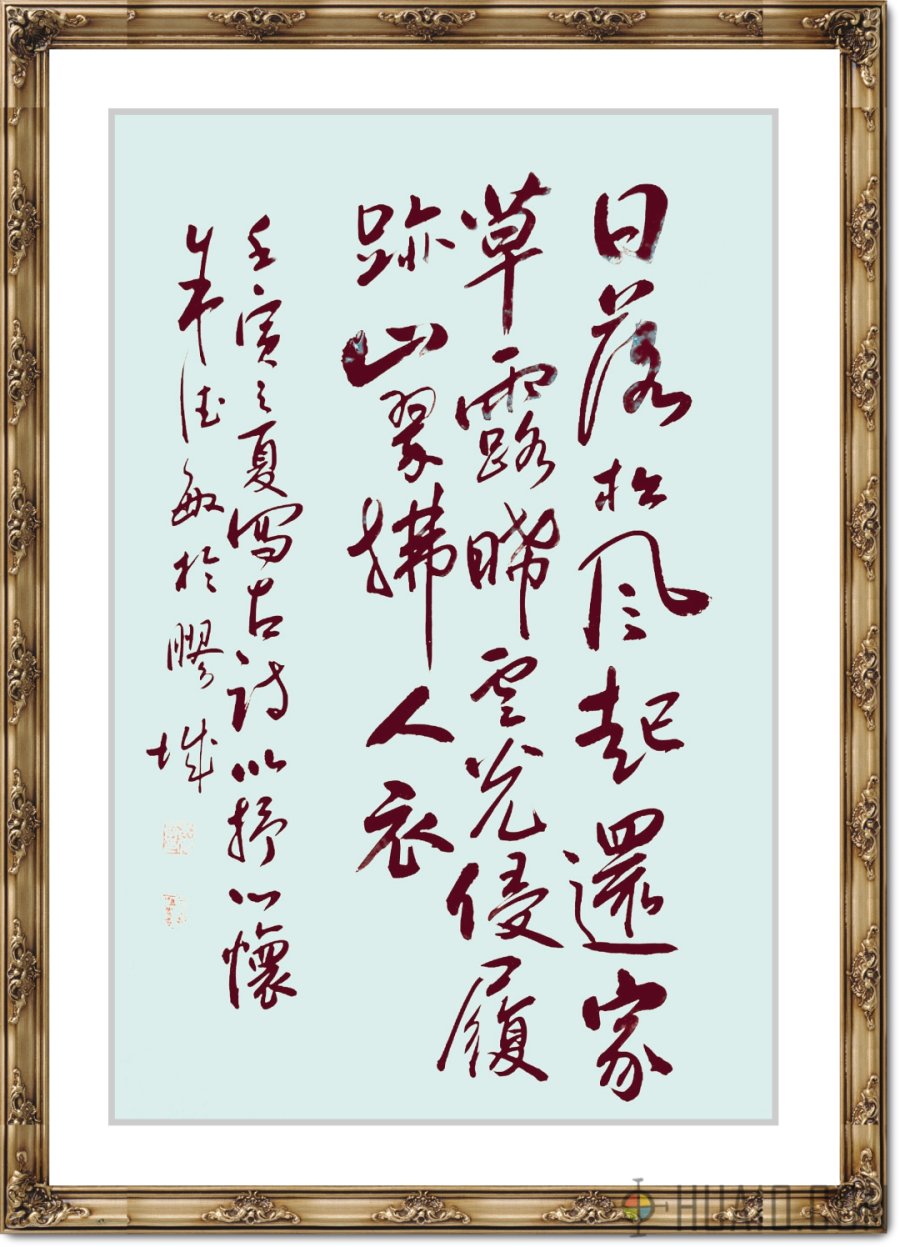 日落松风起還家
草露晞雲光侵履
跡山翠拂人衣
壬寅之夏寫古詩以抒心懷
朱德敏於膠城